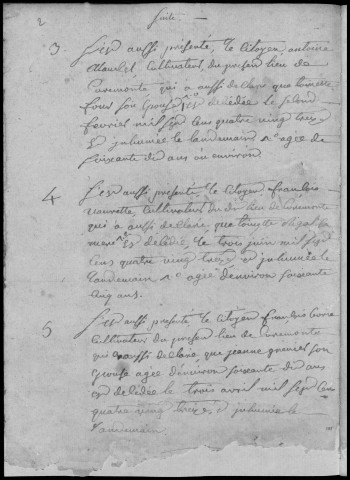 2 Suite
3 S'est aussi présenté, le Citoyen, antoine
Cultivateur, du présent lieu de
Curemonte qui a aussi declare que
son Epouse est décédée le second
fevrier mil sept cens quatre vingt treze
et inhumée le landemain agee de
soixante dix ans ou environ.
4 S'est aussi présenté, le Citoyen françois
Cultivateur du dit lieu de Curemonte
qui a aussi declare, que
mere est décédée, le trois juin mil sept
cens quatre vingt treze et inhumée le
landemain agee d'environ soixante
cinq ans.
5 S'est aussi présenté, le Citoyen françois
Cultivateur du présent lieu de Curemonte
qui a aussi declare, que jeanne son
epouse agée d'environ soixante dix ans
est décédée le trois avril mil sept cens
quatre vingt treze, et inhumée le
landemain